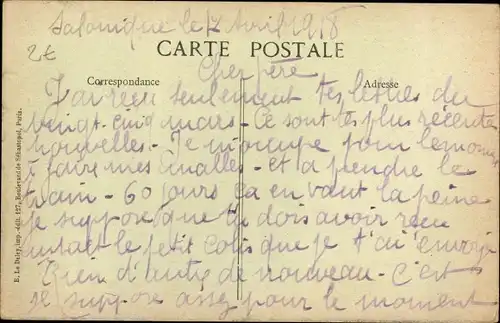 Salonique le 12 Avril 1918
2€
CARTE POSTALE
Correspondance
Adresse
Cher père
J'ai reçu seulement tes lettres du
vingt-cinq mars - Ce sont tes plus récentes
nouvelles - Je m'occupe pour le moment
à faire mes malles - et à prendre le
train - 60 jours ça en vaut la peine
je suppose que tu dois avoir reçu
intact le petit colis que je t'ai envoyé
Rien d'autre de nouveau - C'est
je suppose assez pour le moment
E. Le Deley, imp.-édit. 127, Boulevard de Sébastopol, Paris.